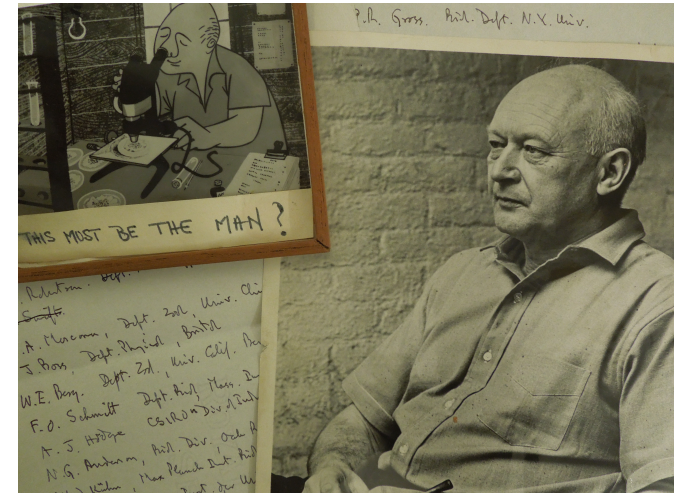 P.R. Gross. Biol. Dept. N.Y. Univ.
THIS MOST BE THE MAN?
Robertson. Dept.
Swift.
A. Moscona, Dept. Zool, Univ. Chi
J. Ross, Dept. Physiol, Bristol
W.E. Berg. Dept. Zol., Univ. Calif. Be
F.O. Schmitt Dept. Biol, Mass. In
A. J. Hodge CSIRO Div. of Ind
N.G. Anderson, Biol. Div., Oak R
Kühn, Max Planck Inst. Biol